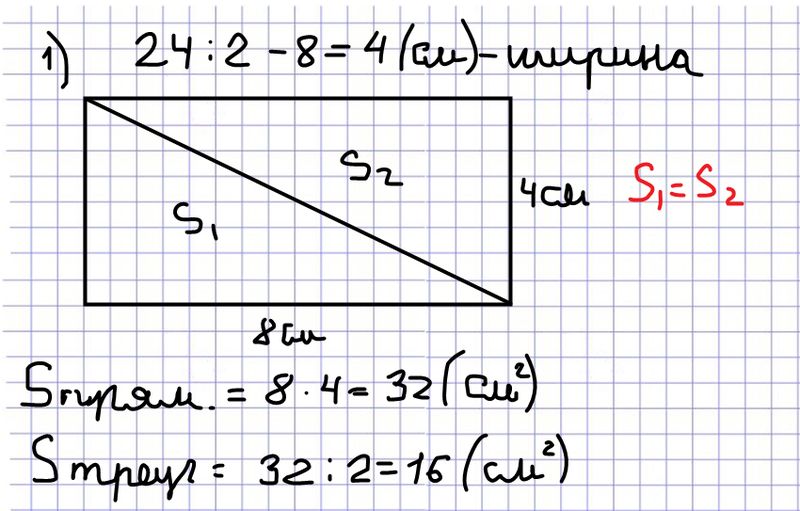 1) 24 : 2 - 8 = 4 (см) - ширина
S2
4см S1 = S2
S1
8см
Sпрям. = 8 · 4 = 32 (см²)
Sтреуг = 32 : 2 = 16 (см²)